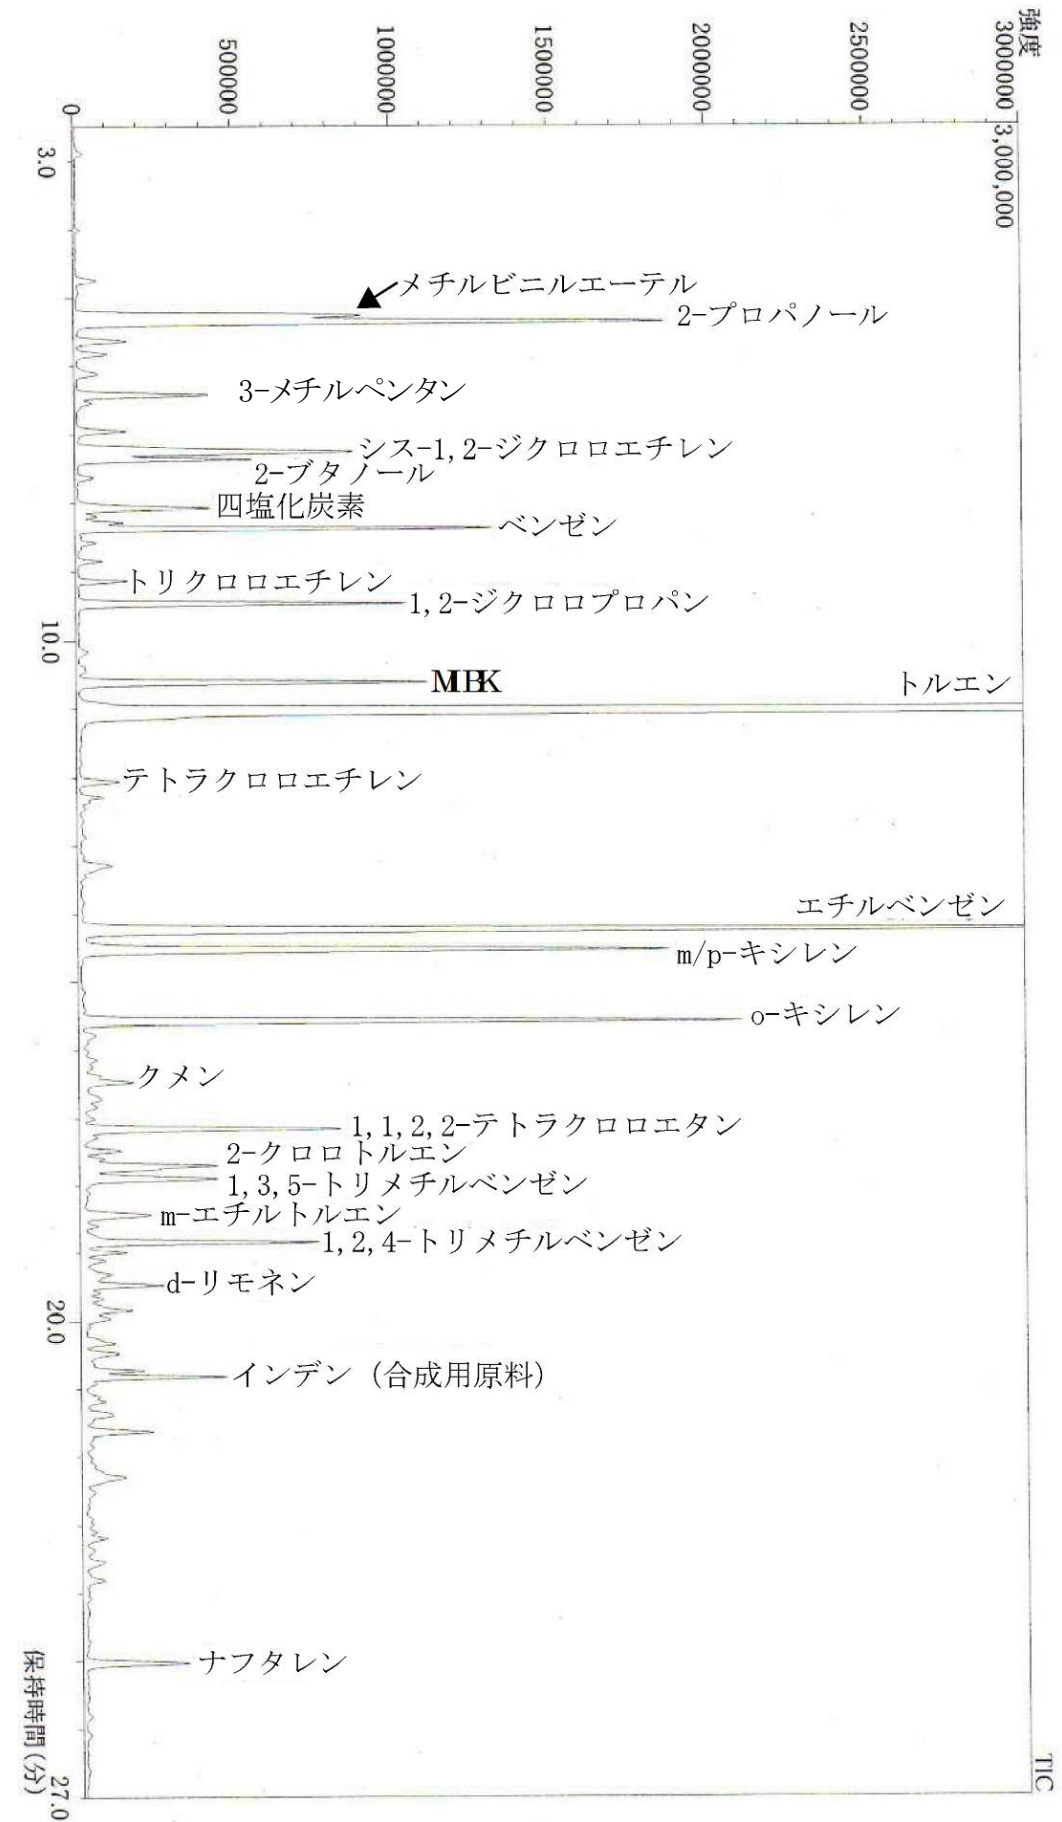 強度
3000000
2500000
2000000
1500000
1000000
500000
0
3,000,000
3.0
メチルビニルエーテル
2-プロパノール
3-メチルペンタン
シス-1,2-ジクロロエチレン
2-ブタノール
四塩化炭素
ベンゼン
トリクロロエチレン
1,2-ジクロロプロパン
10.0
MIBK
トルエン
テトラクロロエチレン
エチルベンゼン
m/p-キシレン
o-キシレン
クメン
1,1,2,2-テトラクロロエタン
2-クロロトルエン
1,3,5-トリメチルベンゼン
m-エチルトルエン
1,2,4-トリメチルベンゼン
d-リモネン
20.0
インデン（合成用原料）
ナフタレン
TIC
保持時間(分)
27.0